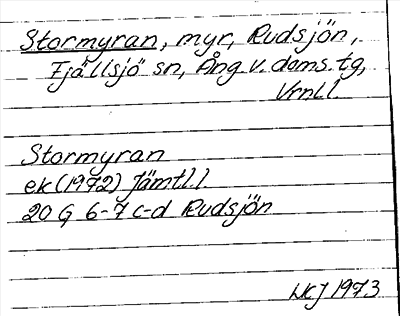 Stormyran, myr, Rudsjön,
Fjällsjö sn, Ång. v. doms. tg,
Vrnl l.
Stormyran
ek (1972) Jämtl. l
20 G 6-7 c-d Rudsjön
1973